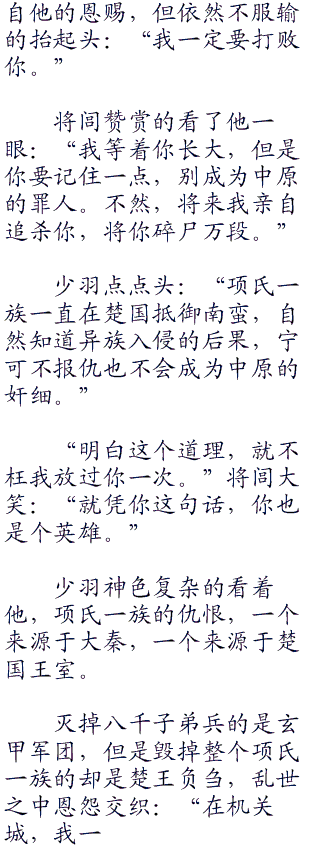 自他的恩赐，但依然不服输
的抬起头：“我一定要打败
你。”
将闾赞赏的看了他一
眼：“我等着你长大，但是
你要记住一点，别成为中原
的罪人。不然，将来我亲自
追杀你，将你碎尸万段。”
少羽点点头：“项氏一
族一直在楚国抵御南蛮，自
然知道异族入侵的后果，宁
可不报仇也不会成为中原的
奸细。”
“明白这个道理，就不
枉我放过你一次。”将闾大
笑：“就凭你这句话，你也
是个英雄。”
少羽神色复杂的看着
他，项氏一族的仇恨，一个
来源于大秦，一个来源于楚
国王室。
灭掉八千子弟兵的是玄
甲军团，但是毁掉整个项氏
一族的却是楚王负刍，乱世
之中恩怨交织：“在机关
城，我一